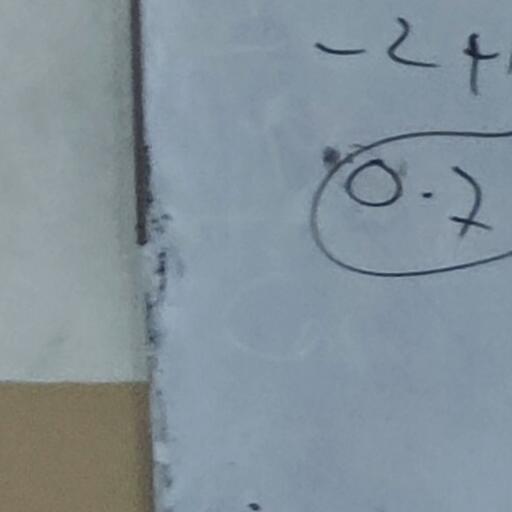 -2+
0.7